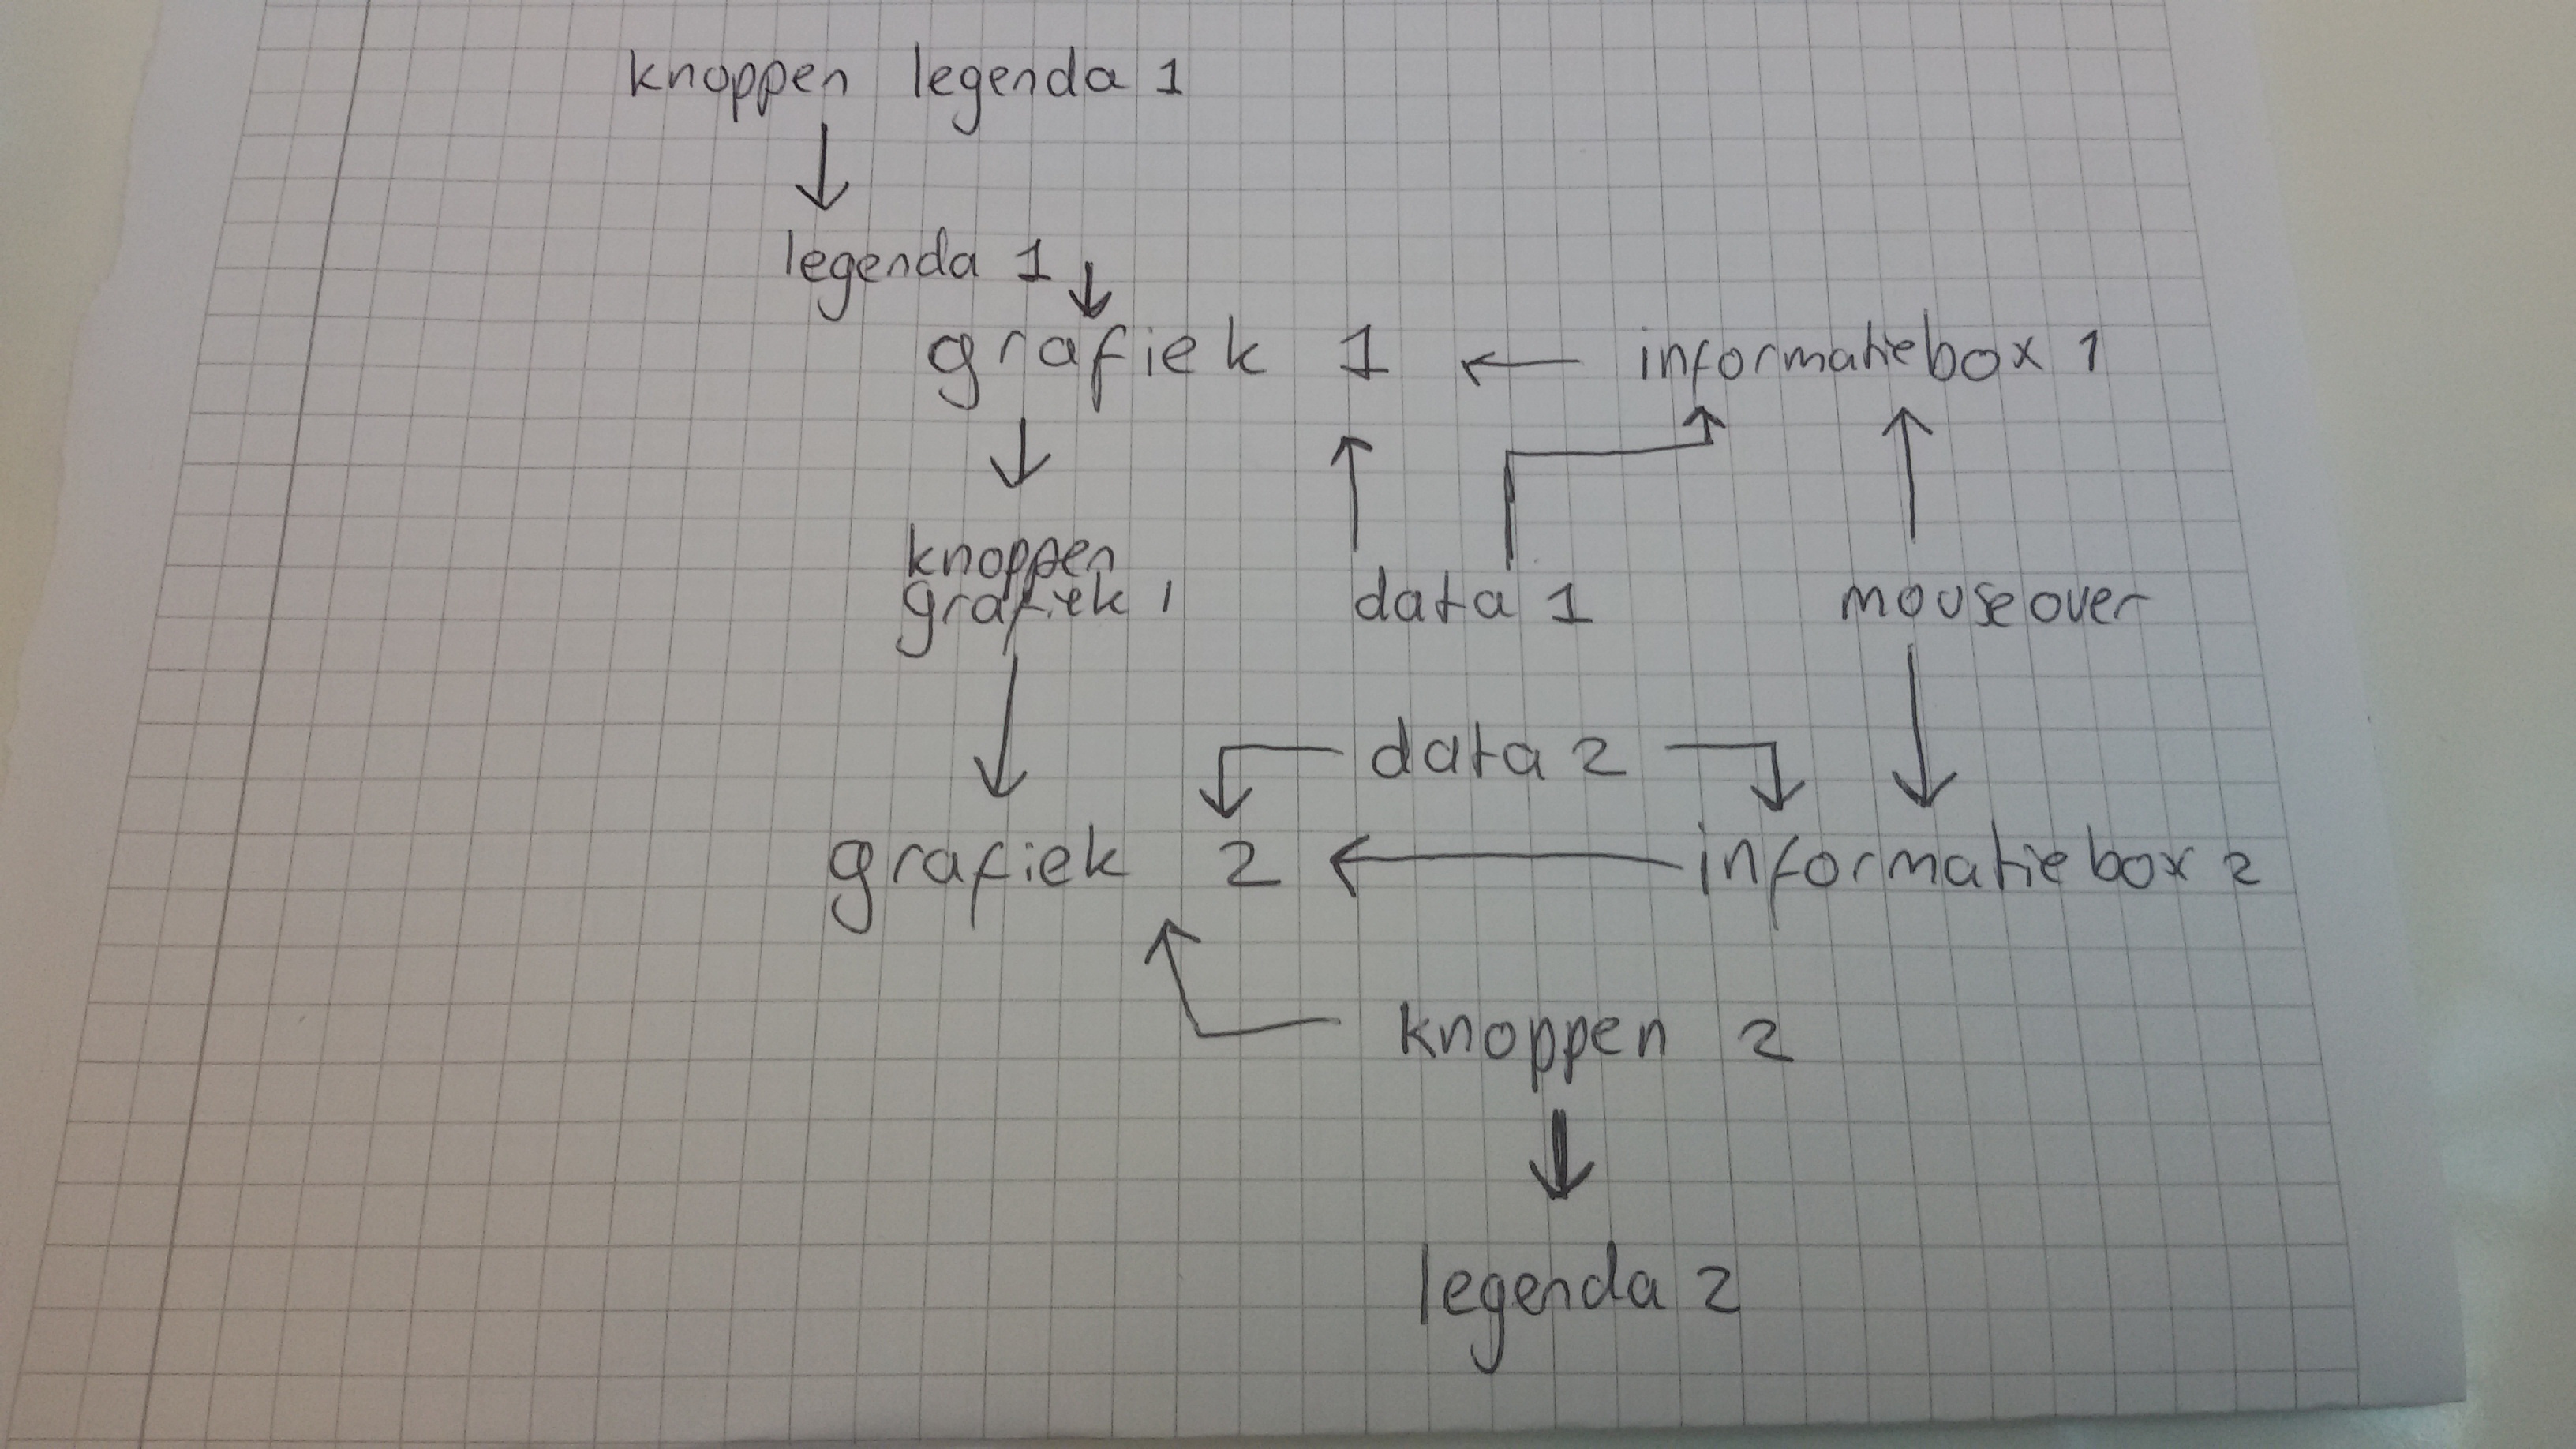 knoppen legenda 1
legenda 1
grafiek 1
informatiebox 1
knoppen
grafiek 1
data 1
mouseover
data 2
grafiek 2
informatiebox 2
knoppen 2
legenda 2